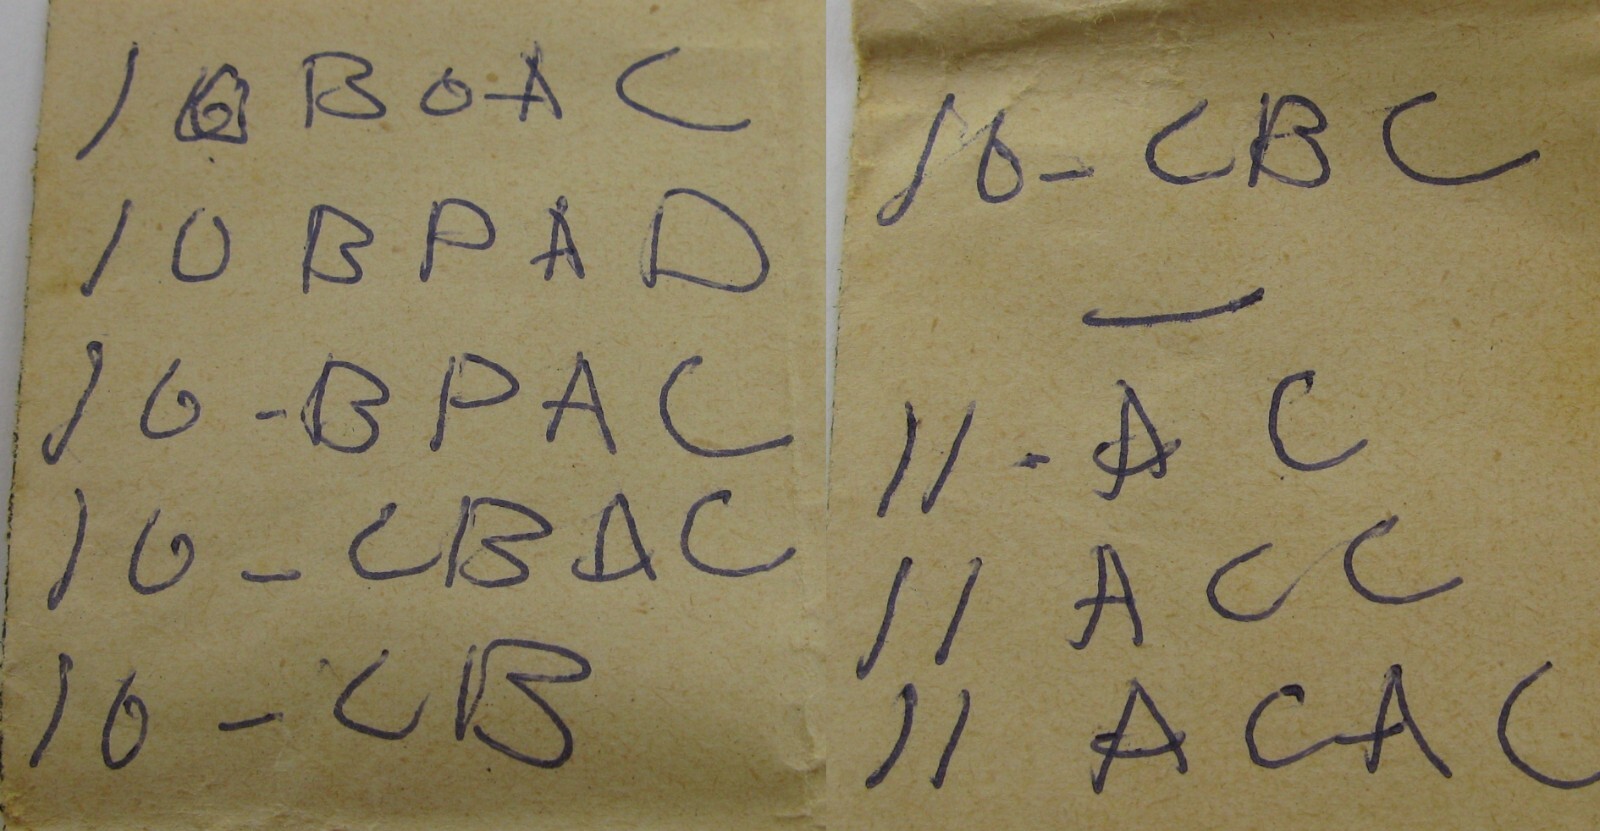 10 BOAC
10 BPAD
10-BPAC
10-CBAC
10-CB
10-CBC
11-AC
11 ACC
11 ACAC